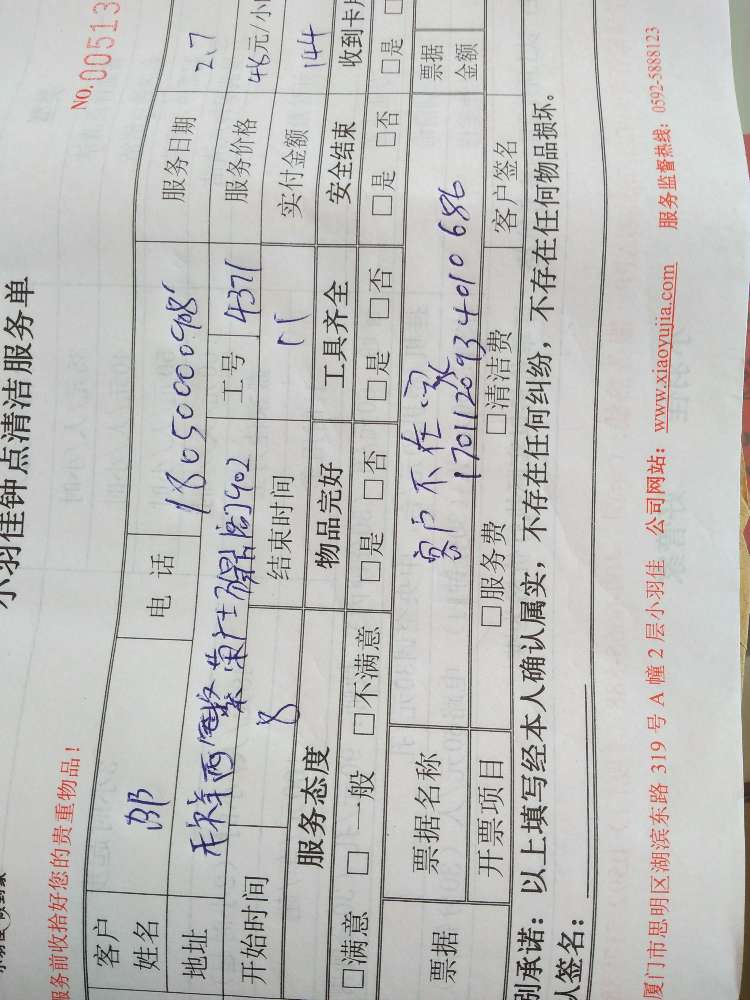 小羽佳钟点清洁服务单
服务前收拾好您的贵重物品！
NO.00513
客户姓名 邵 电话 18050000908 服务日期 2.7
地址 402 工号 4371 服务价格 48元/小
开始时间 8 结束时间 11 实付金额 144
服务态度 物品完好 工具齐全 安全结束 收到卡
□满意 □一般 □不满意 □是 □否 □是 □否 □是 □否 □是
票据 票据名称 客户不在家 票据金额
1701120934010686
开票项目 □服务费 □清洁费 客户签名
别承诺：以上填写经本人确认属实，不存在任何纠纷，不存在任何物品损坏。
人签名：
厦门市思明区湖滨东路 319 号 A 幢 2 层小羽佳 公司网站：www.xiaoyujia.com 服务监督热线：0592-5888123